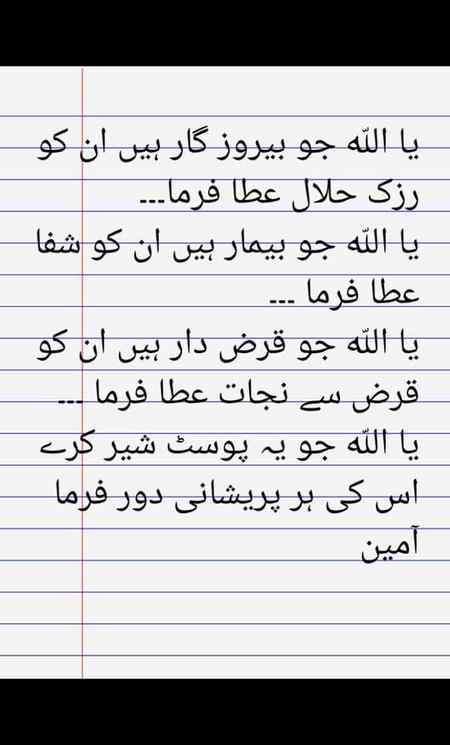 یا اللّٰہ جو بیروز گار ہیں ان کو
رزک حلال عطا فرما---
یا اللّٰہ جو بیمار ہیں ان کو شفا
عطا فرما ---
یا اللّٰہ جو قرض دار ہیں ان کو
قرض سے نجات عطا فرما ---
یا اللّٰہ جو یہ پوسٹ شیر کرے
اس کی ہر پریشانی دور فرما
آمین